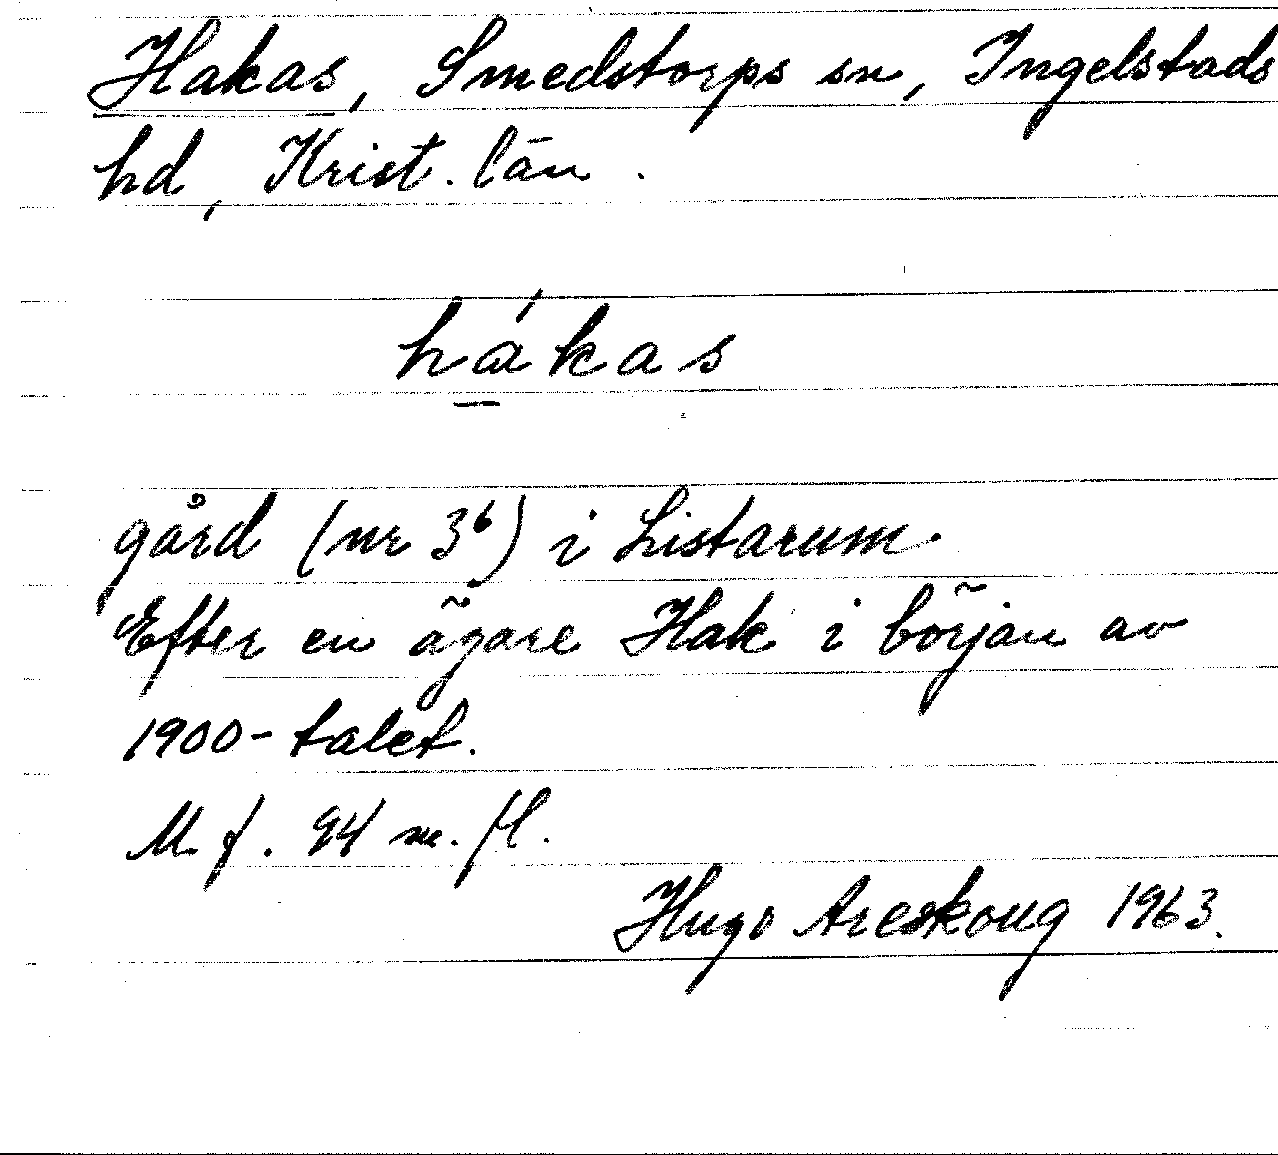 Hakas, Smedstorps sn, Ingelstads
hd, Krist. län.
hákas
gård (nr 3⁶) i Listarum.
Efter en ägare Hak i början av
1900-talet.
M. f. 94 m. fl.
Hugo Areskoug 1963.